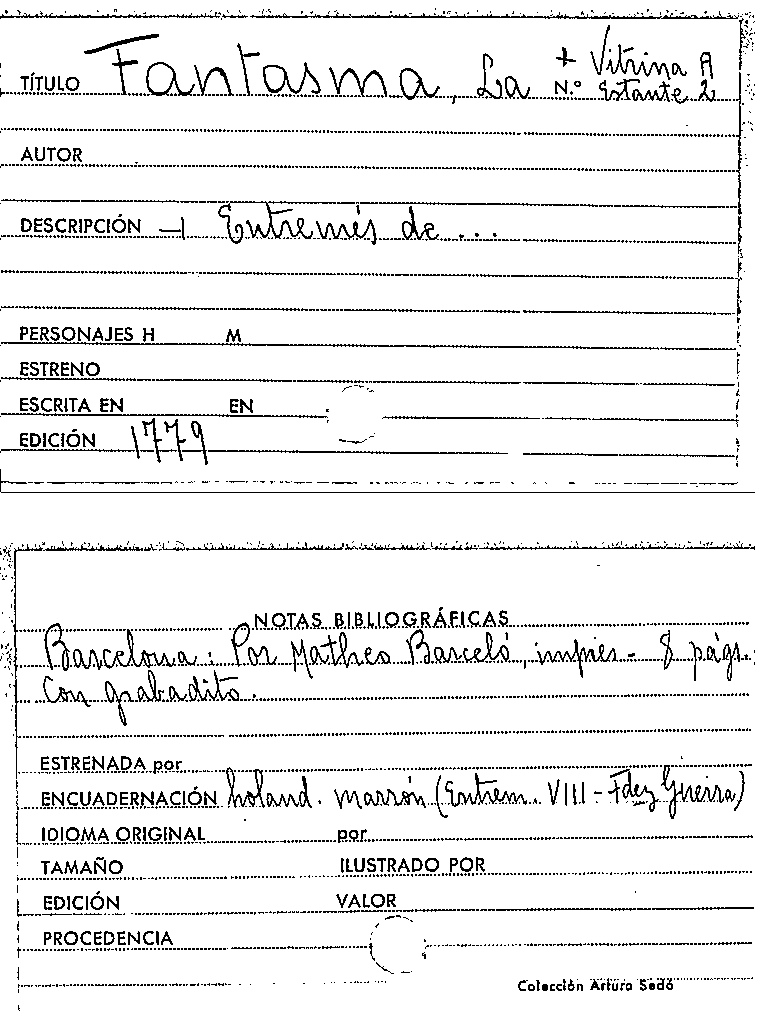 TÍTULO Fantasma, La + Vitrina A
N.º Estante 2
AUTOR
DESCRIPCIÓN — Entremés de ...
PERSONAJES H M
ESTRENO
ESCRITA EN EN
EDICIÓN 1779
NOTAS BIBLIOGRÁFICAS
Barcelona: Por Matheo Barceló, impres - 8 págs.
Con grabadito.
ESTRENADA por
ENCUADERNACIÓN holand. marrón (Entrem. VIII - Fdez Guerra)
IDIOMA ORIGINAL por
TAMAÑO ILUSTRADO POR
EDICIÓN VALOR
PROCEDENCIA
Colección Arturo Sedó